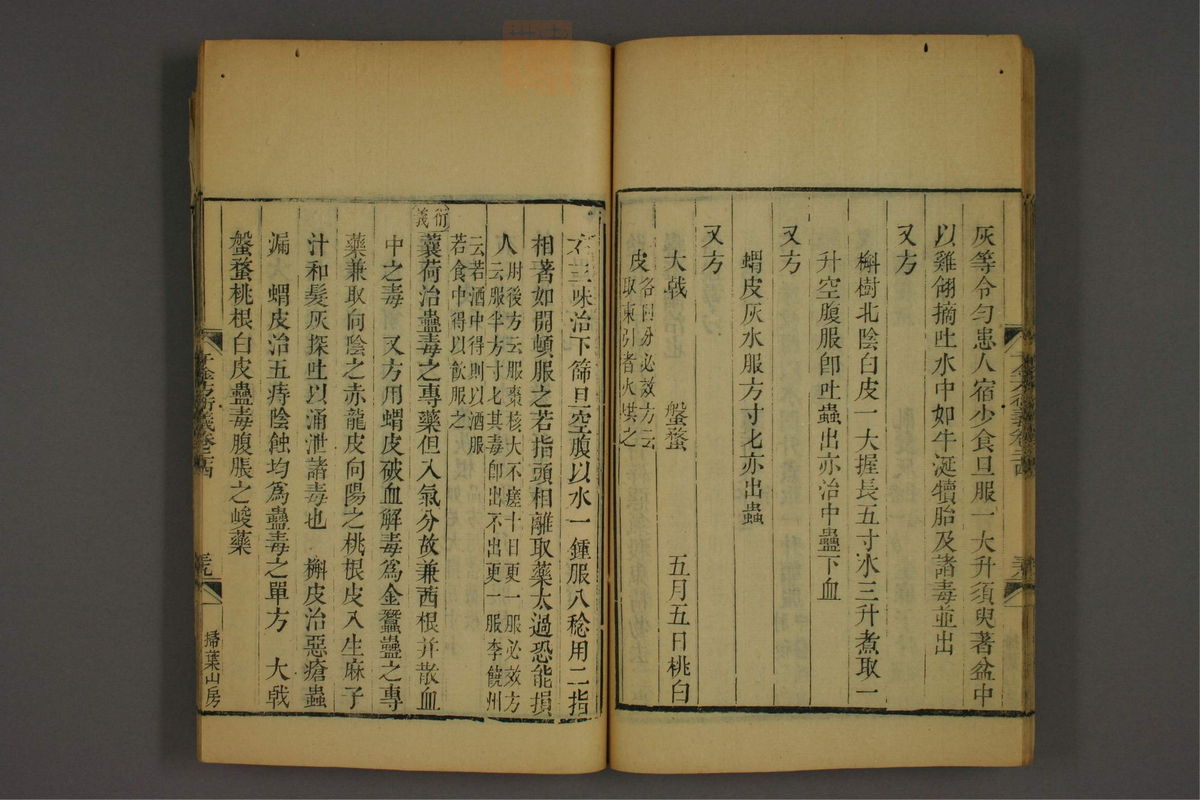 灰等令匀患人宿少食旦服一大升須臾著盆中
以雞翎摘吐水中如牛涎犢胎及諸毒並出
又方
槲樹北陰白皮一大握長五寸水三升煮取一
升空腹服卽吐蟲出亦治中蠱下血
又方
蝟皮灰水服方寸匕亦出蟲
又方
大戟　盤蝥　五月五日桃白
皮各四分必效方云
取東引者火烘之
右三味治下篩旦空腹以水一鍾服八稔用二指
相著如開頓服之若指頭相離取藥太過恐能損
人肘後方云服棗核大不瘥十日更一服必效方
云服半方寸匕其毒卽出不出更一服李饒州
云若酒中得則以酒服
若食中得以飲服之
衍義
蘘荷治蠱毒之專藥但入氣分故兼茜根并散血
中之毒　又方用蝟皮破血解毒爲金蠶蠱之專
藥兼取向陰之赤龍皮向陽之桃根皮入生麻子
汁和髮灰探吐以涌泄諸毒也　槲皮治惡瘡蟲
漏　蝟皮治五痔陰蝕均爲蠱毒之單方　大戟
盤蝥桃根白皮蠱毒腹脹之峻藥
千金方衍義卷二十四
三十九
掃葉山房